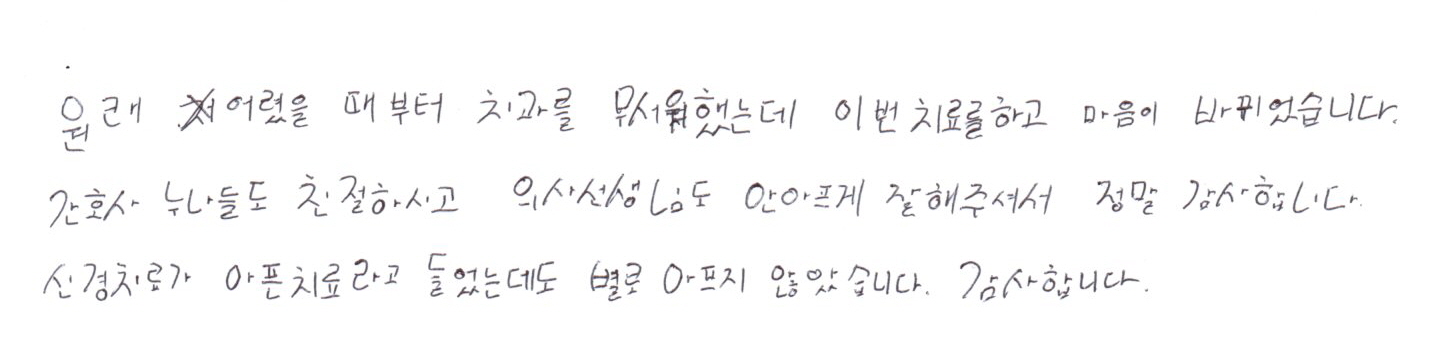 원래 어렸을 때부터 치과를 무서워했는데 이번 치료를하고 마음이 바뀌었습니다.
간호사 누나들도 친절하시고 의사선생님도 안아프게 잘해주셔서 정말 감사합니다.
신경치료가 아픈치료라고 들었는데도 별로 아프지 않았습니다. 감사합니다.